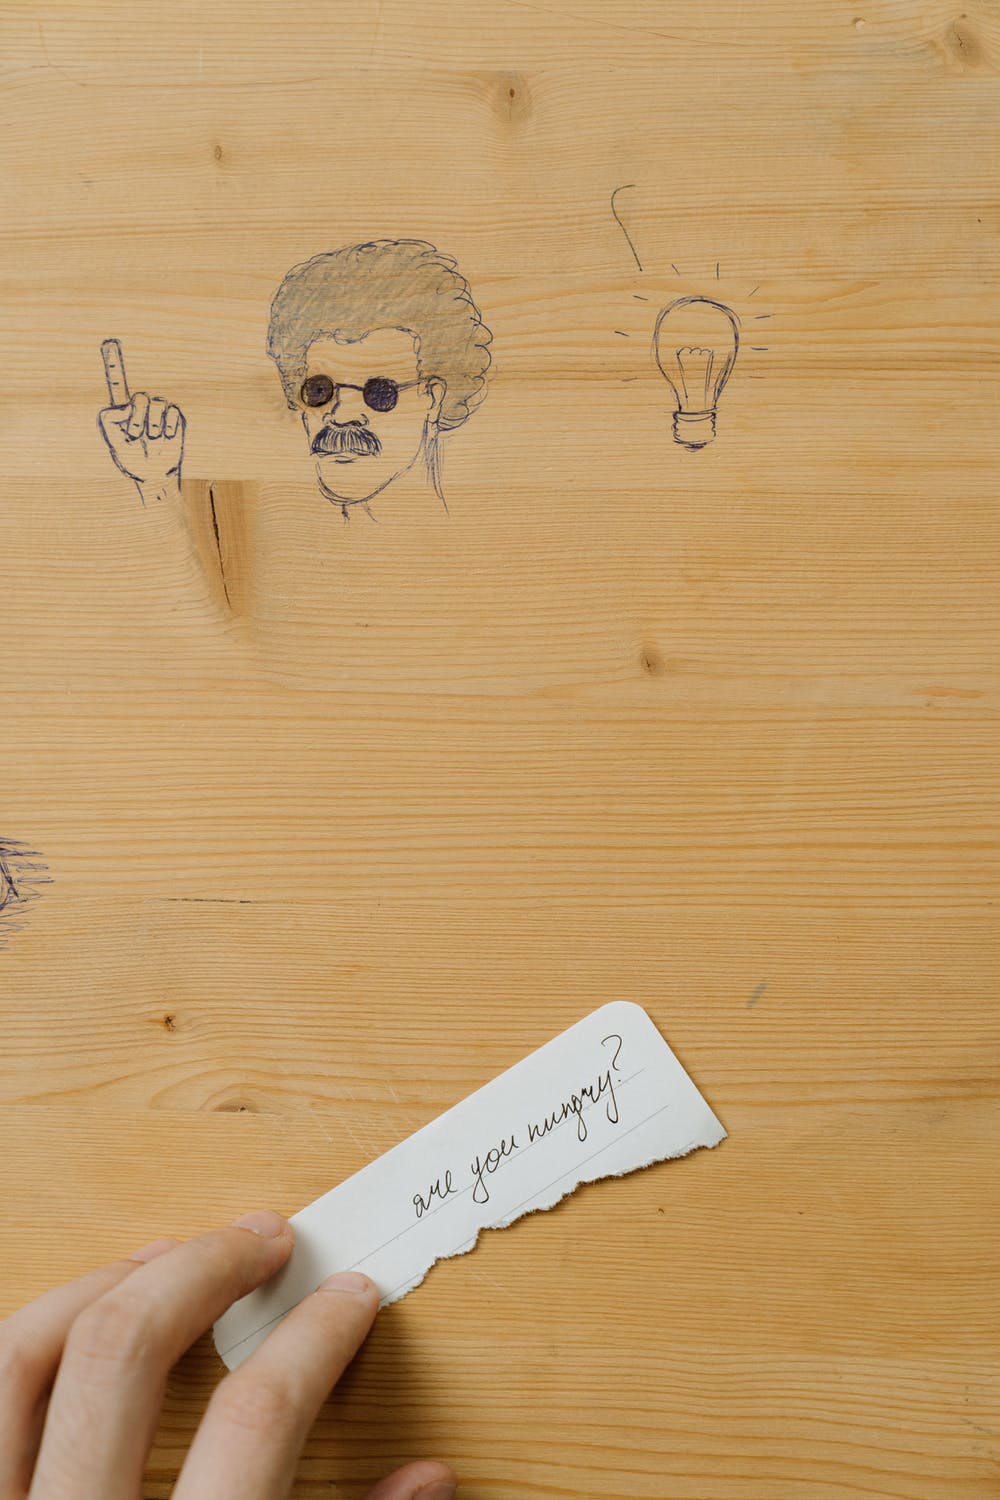 are you hungry?